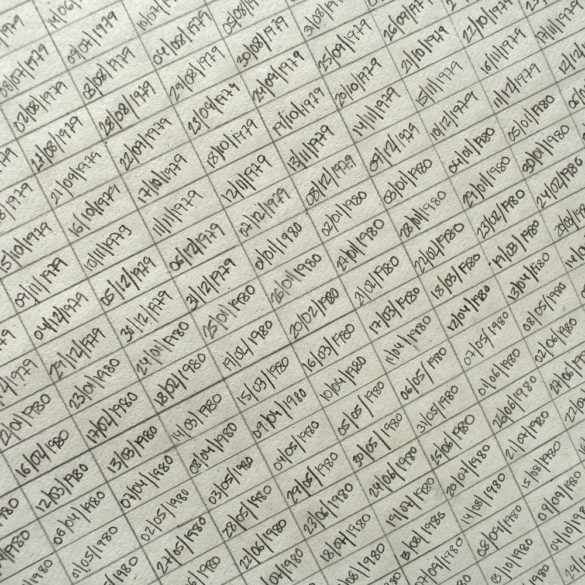 08/07/1979 09/07/1979
02/08/1979 03/08/1979 04/08/1979 05/08/1979
27/08/1979 28/08/1979 29/08/1979 30/08/1979 31/08/1979
21/09/1979 22/09/1979 23/09/1979 24/09/1979 25/09/1979 26/09/1979
15/10/1979 16/10/1979 17/10/1979 18/10/1979 19/10/1979 20/10/1979 21/10/1979 22/10/1979
09/11/1979 10/11/1979 11/11/1979 12/11/1979 13/11/1979 14/11/1979 15/11/1979 16/11/1979 17/11/1979
04/12/1979 05/12/1979 06/12/1979 07/12/1979 08/12/1979 09/12/1979 10/12/1979 11/12/1979
29/12/1979 30/12/1979 31/12/1979 01/01/1980 02/01/1980 03/01/1980 04/01/1980 05/01/1980
22/01/1980 23/01/1980 24/01/1980 25/01/1980 26/01/1980 27/01/1980 28/01/1980 29/01/1980 30/01/1980
16/02/1980 17/02/1980 18/02/1980 19/02/1980 20/02/1980 21/02/1980 22/02/1980 23/02/1980 24/02/1980
12/03/1980 13/03/1980 14/03/1980 15/03/1980 16/03/1980 17/03/1980 18/03/1980 19/03/1980
06/04/1980 07/04/1980 08/04/1980 09/04/1980 10/04/1980 11/04/1980 12/04/1980 13/04/1980
01/05/1980 02/05/1980 03/05/1980 04/05/1980 05/05/1980 06/05/1980 07/05/1980 08/05/1980
27/05/1980 28/05/1980 29/05/1980 30/05/1980 31/05/1980 01/06/1980 02/06/1980
22/06/1980 23/06/1980 24/06/1980 25/06/1980 26/06/1980 27/06/1980
18/07/1980 19/07/1980 20/07/1980 21/07/1980
13/08/1980 14/08/1980 15/08/1980
08/09/1980 09/09/1980
04/10/1980